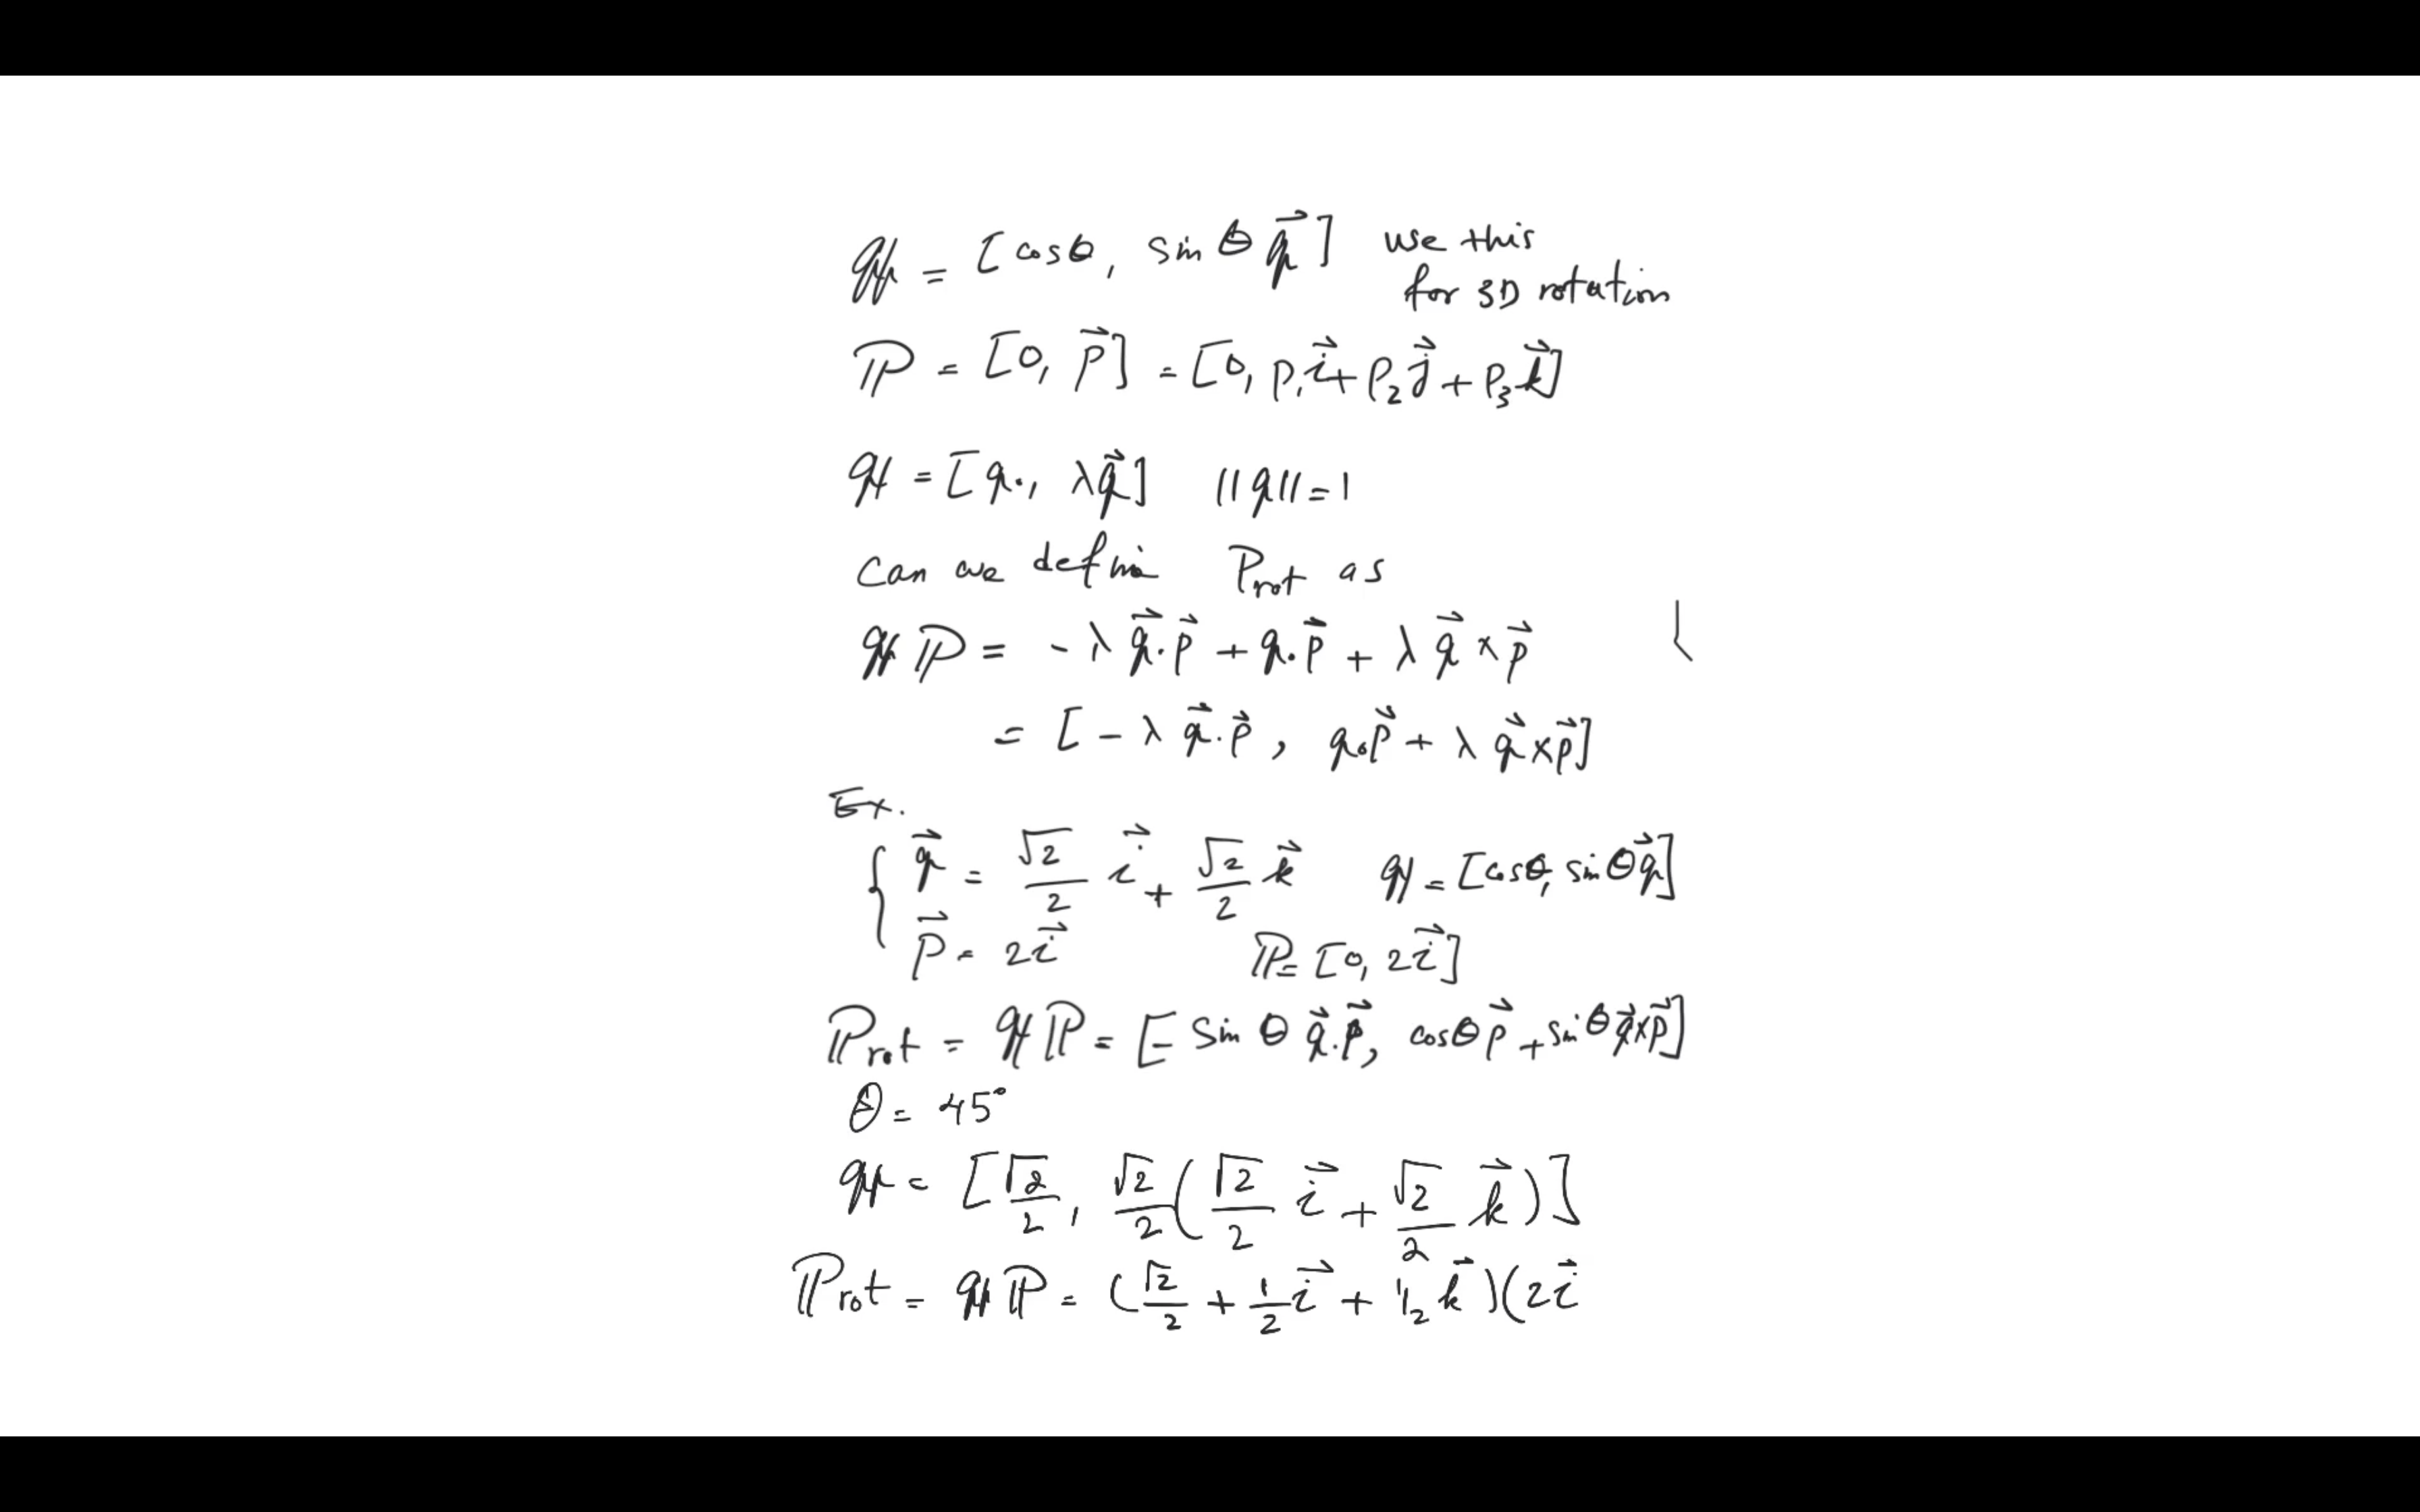 q = [cosθ, sinθ q⃗] use this
for 3D rotation
ℙ = [0, p⃗] = [0, p₁i⃗ + p₂j⃗ + p₃k⃗]
q = [q₀, λq⃗] ||q|| = 1
can we define P_rot as
qℙ = -λ q⃗·p⃗ + q₀p⃗ + λ q⃗ × p⃗
= [-λ q⃗·p⃗, q₀p⃗ + λ q⃗×p⃗]
Ex.
{ q⃗ = √2/2 i⃗ + √2/2 k⃗ q = [cosθ, sinθ q⃗]
p⃗ = 2i⃗ ℙ = [0, 2i⃗]
ℙ_rot = qℙ = [- sinθ q⃗·p⃗, cosθ p⃗ + sinθ q⃗×p⃗]
θ = 45°
q = [√2/2, √2/2 (√2/2 i⃗ + √2/2 k⃗)]
ℙ_rot = qℙ = (√2/2 + 1/2 i⃗ + 1/2 k⃗)(2i⃗